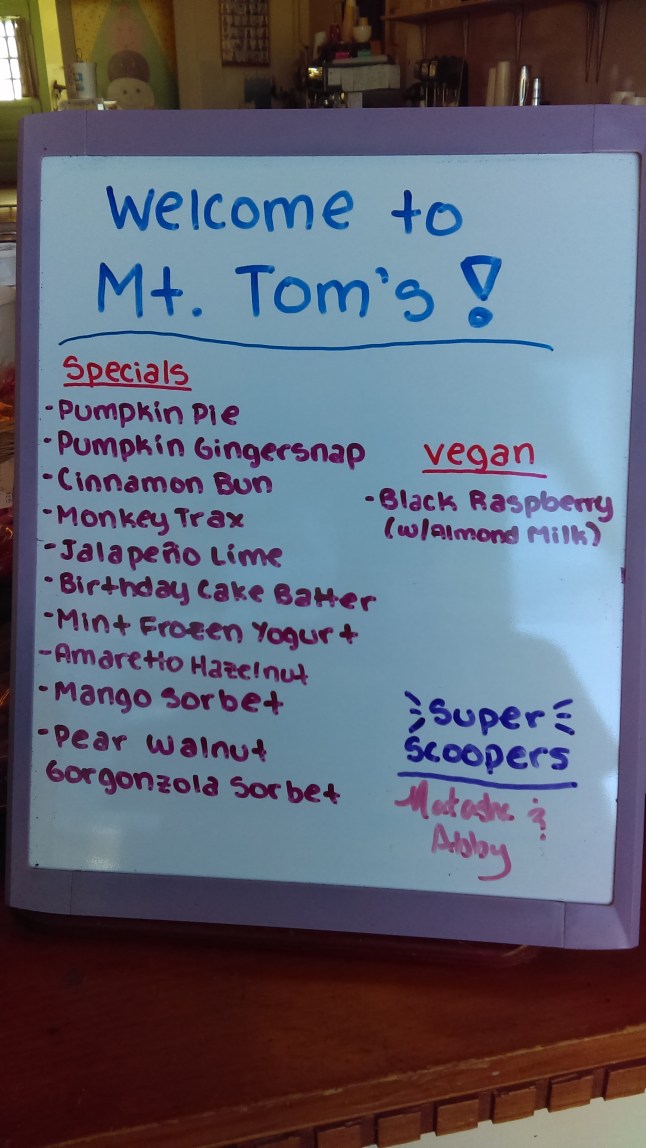 Welcome to
Mt. Tom's!
Specials
-Pumpkin Pie
-Pumpkin Gingersnap
-Cinnamon Bun
-Monkey Trax
-Jalapeño Lime
-Birthday Cake Batter
-Mint Frozen Yogurt
-Amaretto Hazelnut
-Mango Sorbet
-Pear Walnut
Gorgonzola Sorbet
vegan
-Black Raspberry
(w/Almond Milk)
Super
Scoopers
&
Abby